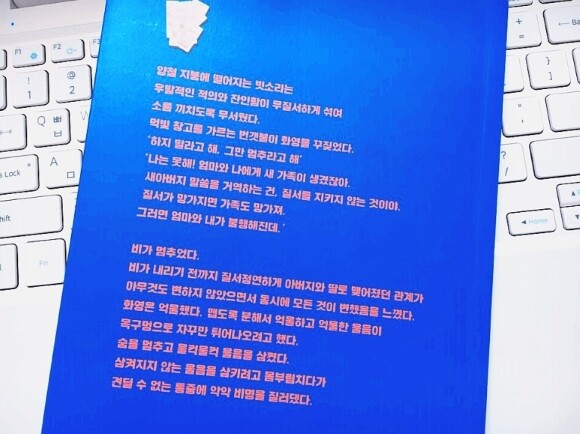 양철 지붕에 떨어지는 빗소리는
우발적인 적의와 잔인함이 무질서하게 섞여
소름 끼치도록 무서웠다.
먹빛 창고를 가르는 번갯불이 화영을 꾸짖었다.
'하지 말라고 해. 그만 멈추라고 해'
'나는 못해! 엄마와 나에게 새 가족이 생겼잖아.
새아버지 말씀을 거역하는 건, 질서를 지키지 않는 것이야.
질서가 망가지면 가족도 망가져.
그러면 엄마와 내가 불행해진데.'
비가 멈추었다.
비가 내리기 전까지 질서정연하게 아버지와 딸로 맺어졌던 관계가
아무것도 변하지 않았으면서 동시에 모든 것이 변했음을 느꼈다.
화영은 억울했다. 맵도록 분해서 억울하고 억울한 울음이
목구멍으로 자꾸만 튀어나오려고 했다.
숨을 멈추고 울컥울컥 울음을 삼켰다.
삼켜지지 않는 울음을 삼키려고 몸부림치다가
견딜 수 없는 통증에 악악 비명을 질러댔다.
F1
F2
1
2
Q
ㅂ
ㅃ
A
ㅁ
Lock
Shift
Ctrl
Fn
Home